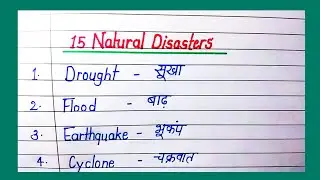 15 Natural Disasters
1. Drought - सूखा
2. Flood - बाढ़
3. Earthquake - भूकंप
4. Cyclone - चक्रवात